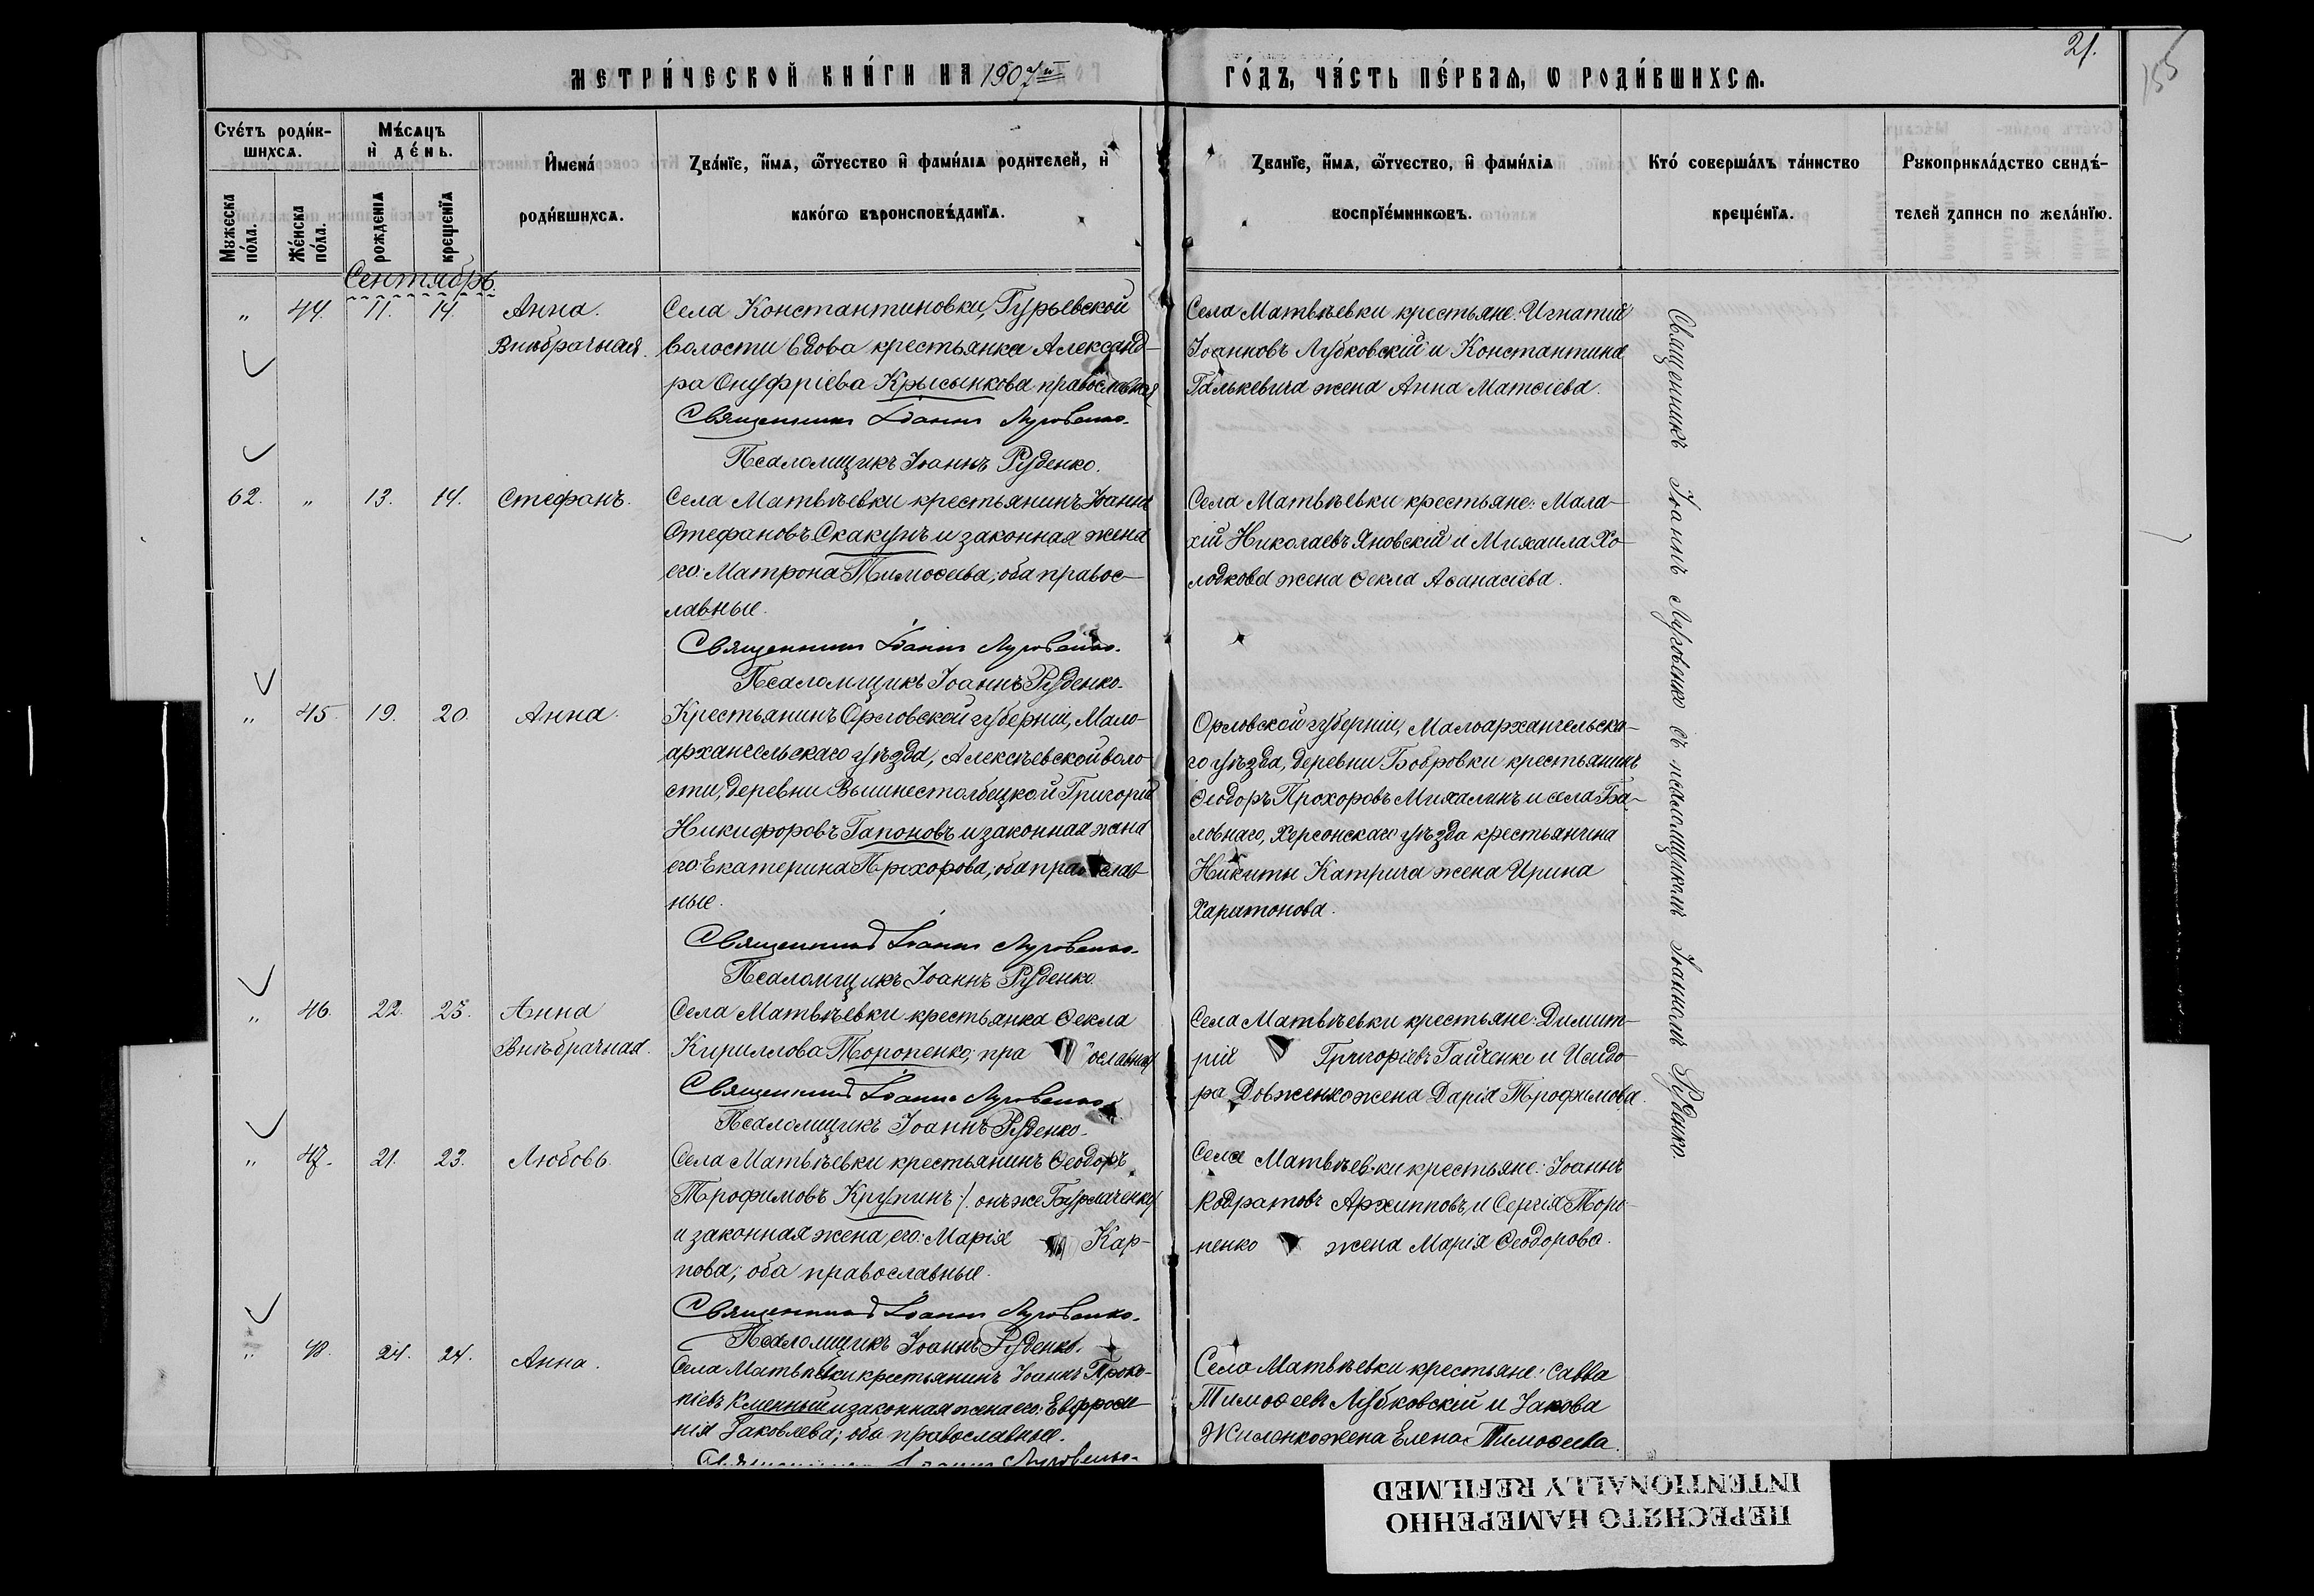 МЕТРИ́ЧЕСКОЙ КНИ́ГИ НА 1907й
ГО́ДЪ, ЧА́СТЬ ПЕ́РВАѦ, Ѡ РОДИ́ВШИХСѦ.
21.
155
Счетъ роди́в-
шихсѧ.
Мѣсѧцъ
и де́нь.
Имена́
роди́вшихсѧ.
Зва́нїе, и́мѧ, ѻ́тчество и фами́лїѧ родителей, и
како́гѡ вѣроисповѣ́данїѧ.
Зва́нїе, и́мѧ, ѻ́тчество, и фами́лїѧ
воспрїе́мникѡвъ.
Кто́ соверша́лъ та́инство
креще́нїѧ.
Рꙋкоприкла́дство свидѣ́-
телей записи по жела́нїю.
Мꙋжеска
по́ла.
Же́нска
по́ла.
рожденїѧ
крещенїѧ
Сентябрь.
„ 44. 11. 14. Анна.
Внѣбрачная.
Села Константиновки, Гурьевской
волости вдова крестьянка Александ-
ра Онуфріева Крысынкова православная
Священникъ Іоаннъ Луговенко.
Псаломщикъ Іоаннъ Руденко.
Села Матвѣевки крестьяне: Игнатій
Іоанновъ Лубковскій и Константина
Галькевича жена Анна Матѳіева.
62. „ 13. 14. Стефанъ.
Села Матвѣевки крестьянинъ Іоаннъ
Стефановъ Скакунъ и законная жена
его: Матрона Тимоѳеева; оба правос-
лавные.
Священникъ Іоаннъ Луговенко.
Псаломщикъ Іоаннъ Руденко.
Села Матвѣевки крестьяне: Мала-
хій Николаевъ Яновскій и Михаила Хо-
лодкова жена Ѳекла Аѳанасіева.
„ 45. 19. 20. Анна.
Крестьянинъ Орловской губерніи, Мало-
архангельскаго уѣзда, Алексѣевской воло-
сти, деревни Вышнестолбецкой Григорій
Никифоровъ Гапоновъ и законная жена
его: Екатерина Прохорова; оба православ-
ные.
Священникъ Іоаннъ Луговенко.
Псаломщикъ Іоаннъ Руденко.
Орловской губерніи, Малоархангельска-
го уѣзда, деревни Бобровки крестьянинъ
Ѳеодоръ Прохоровъ Михалинъ и села Ба-
ловнаго, Херсонскаго уѣзда крестьянина
Никиты Катрича жена Ирина
Харитонова.
„ 46. 22. 23. Анна
Внѣбрачная.
Села Матвѣевки крестьянка Ѳекла
Кириллова Торопенко; пра ославная
Священникъ Іоаннъ Луговенко.
Псаломщикъ Іоаннъ Руденко.
Села Матвѣевки крестьяне: Димит-
рій Григоріевъ Гайченко и Исидо-
ра Довженко жена Дарія Трофимова.
„ 47. 21. 23. Любовь.
Села Матвѣевки крестьянинъ Ѳеодоръ
Трофимовъ Крупинъ /. онъ же Бурлаченко/
и законная жена, его: Марія Кар-
пова; оба православные.
Священникъ Іоаннъ Луговенко.
Псаломщикъ Іоаннъ Руденко.
Села Матвѣевки крестьяне: Іоаннъ
Кодратовъ Архипповъ, и Сергія Торо-
пенко жена Марія Ѳеодорова.
„ 48. 24. 24. Анна.
Села Матвѣевки крестьянинъ Іоаннъ Проко-
піевъ Клменный и законная жена его: Евфроси-
нія Іаковлева; оба православные.
Священникъ Іоаннъ Луговенко.
Села Матвѣевки крестьяне: Савва
Тимоѳеевъ Лубковскій и Іакова
Жиленко жена Елена Тимоѳеева.
Священникъ Іоаннъ Луговенко съ псаломщикомъ Іоанномъ Руденко.
ПЕРЕСНЯТО НАМЕРЕННО
INTENTIONALLY REFILMED